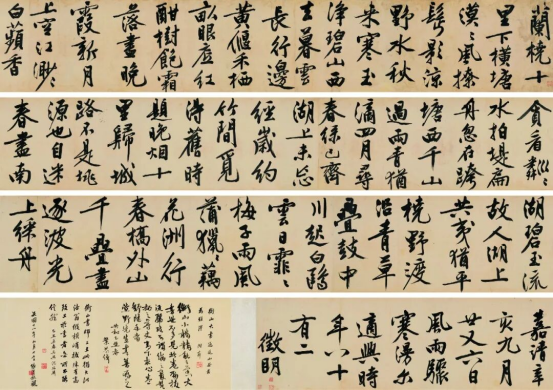 蘭橈十
里下橫塘
漠漠風撩
鬢影涼
野水秋
來寒玉
淨碧山西
去暮雲
長行邊
黃偃禾栖
畝眼底紅
酣樹飽霜
落盡晚
霞新月
上空江渺渺
白蘋香
貪看粼粼
水拍堤扁
舟忽在跨
塘西千山
過雨青猶
滴四月尋
春綠已齊
湖上未忘
經歲約
竹間覓
得舊時
題晚烟十
里歸城
路不是桃
源也自迷
春盡南
湖碧玉流
故人湖上
共夷猶平
橈野渡
沿青草
疊鼓中
川起白鷗
雲日霏霏
梅子雨風
蒲獵獵藕
花洲行
春橋外山
千疊盡
逐波光
上綵舟
嘉靖辛
亥九月
廿又六日
風雨驟
寒漫書
適興時
年八十
有二
徵明